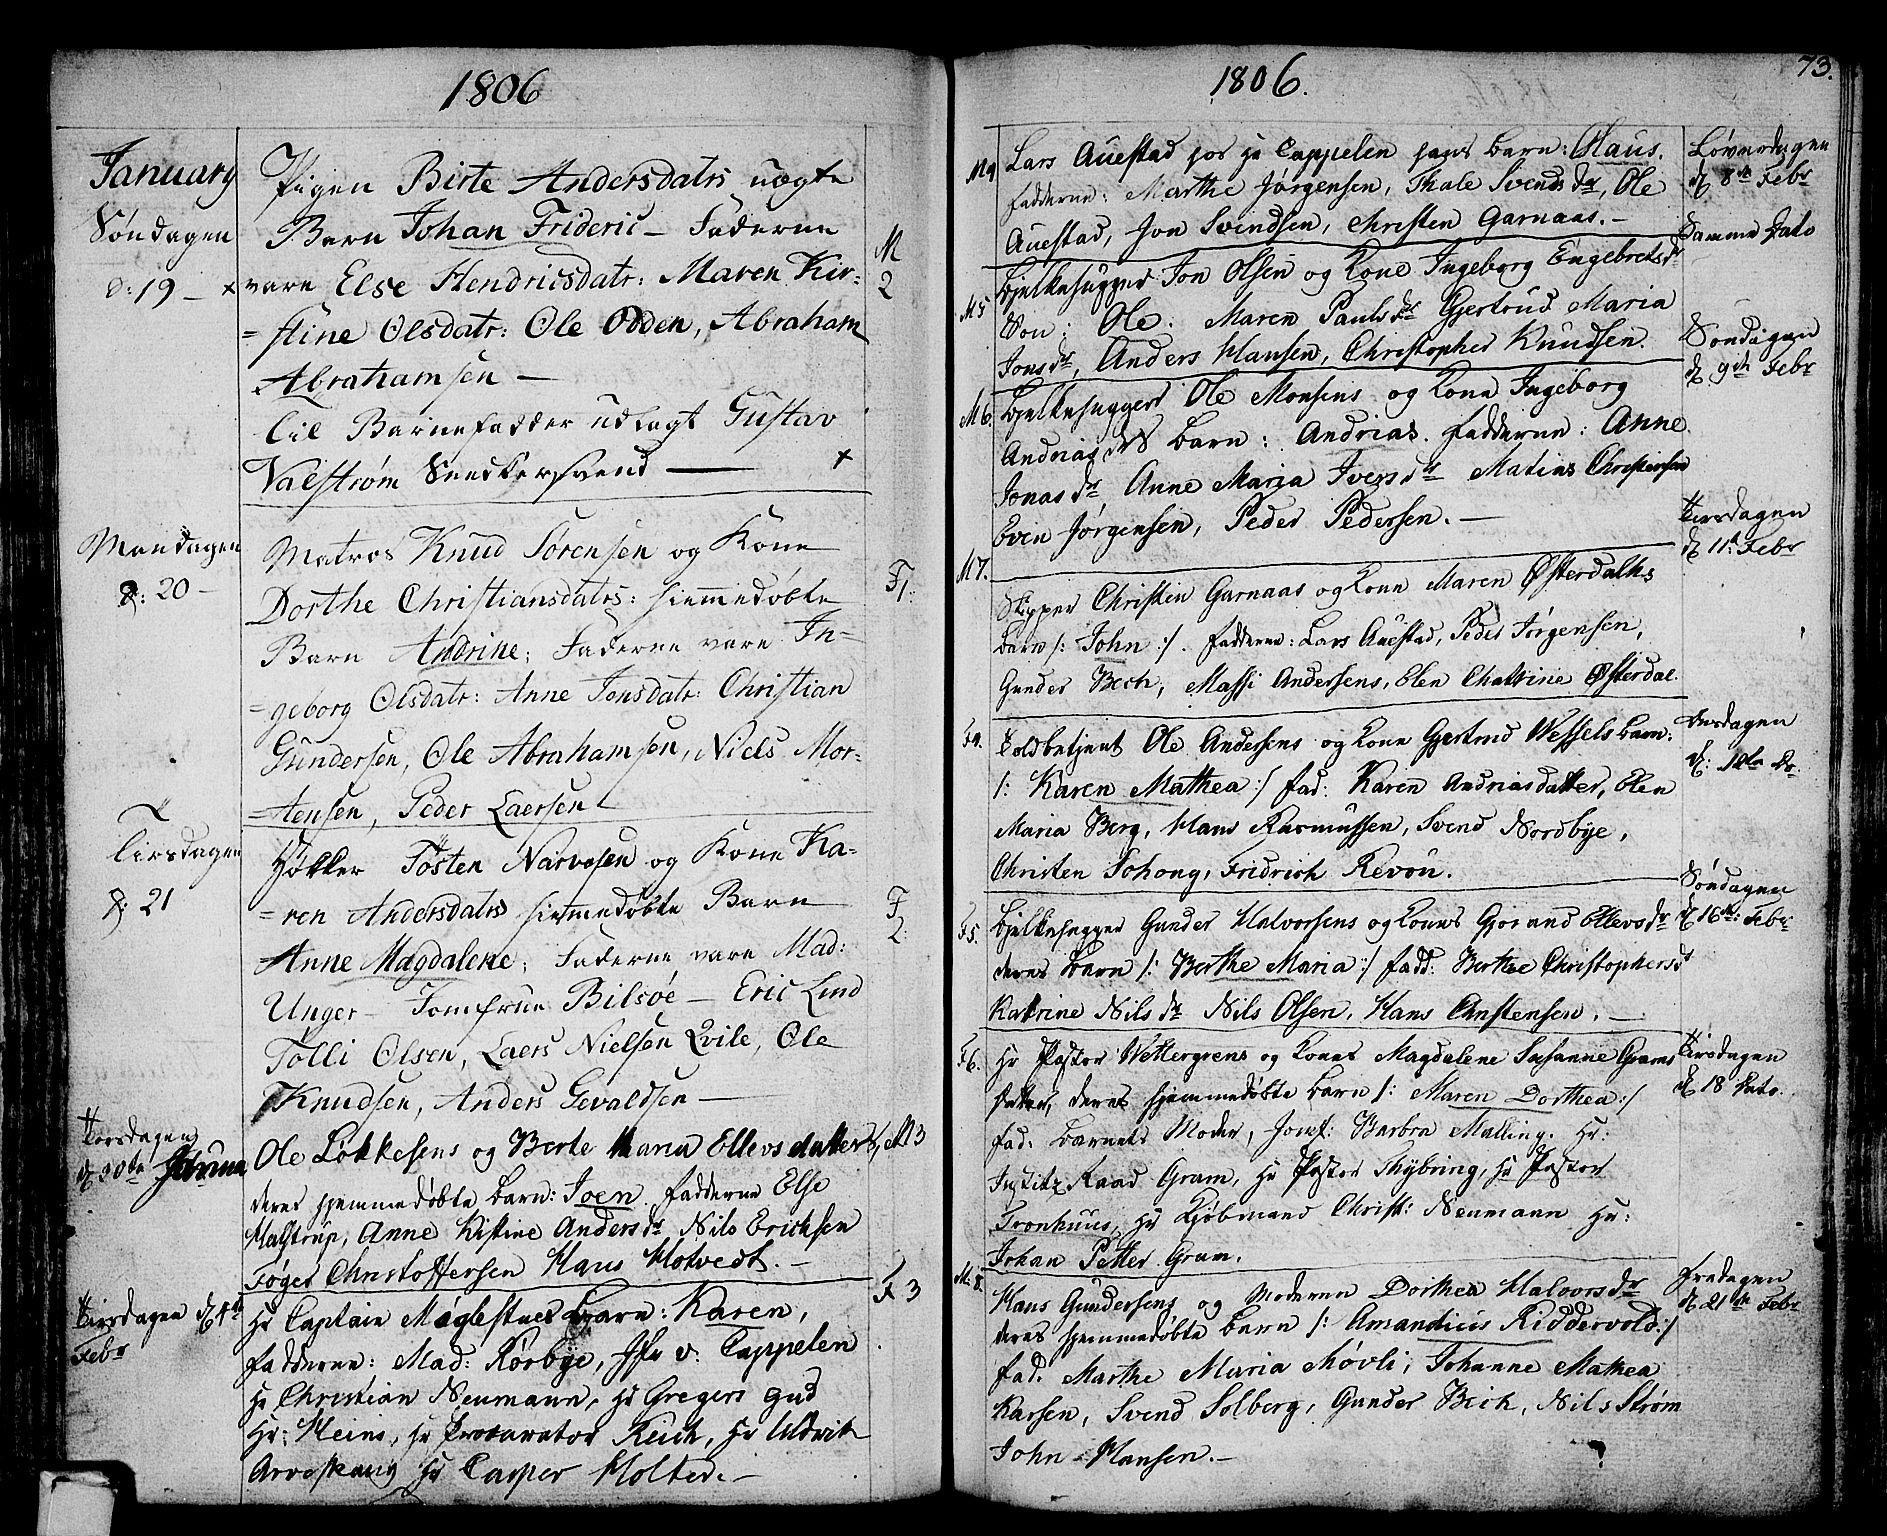 1806
January
Søndagen
d: 19 –
Pigen Birte Andersdatrs uægte
Barn Johan Frideric – Faderne
× vare Else Hendricsdatr: Maren Kir-
= stine Olsdatr: Ole Odden, Abraham
Abrahamsen –
Til Barnefadder udlagt Gustav
Valstrøm Snedkersvend — ×
M
2
Mandagen
d: 20 –
Matros Knud Sørensen og Kone
Dorthe Christiansdatrs: hiemmedøbte
Barn Andrine; Faderne vare In-
= geborg Olsdatr: Anne Jensdatr: Christian
Gundersen, Ole Abrahamsen, Niels Mor-
= tensen, Peder Laersen
F1.
Tirsdagen
d: 21
Høkker Tosten Narvesen og Kone Ka-
= ren Andersdatrs hiemmedøbte Barn
Anne Magdalene; Faderne vare Mad:
Unger – Jomfrue Bilsøe – Eric Lund
Tolli Olsen, Laers Nielsen Qvile, Ole
Knudsen, Anders Gevaldsen —
F
2.
Torsdagen
d 30te
Ole Løkkesens og Berte Maria Ellevsdatters,
deres hjemmedøbte Barn: Joen. Fadderne Else
Halstrup, Anne Kistine Andersdr, Nils Erichsen
Tøger Christoffersen Hans Hotvedt. –
M3
Tirsdagen d 4de
Febr
Hr Captain Møglestues Barn: Karen,
Fadderne: Mad: Rørbye, Jfr v: Cappelen
Hr Christian Neumann, Hr Gregers Gud
Hr: Heins, Hr Procurator Reich, Hr Uldrik
Arveskoug Hr Casper Holter. –
F 3
1806.
73.
M4
Lars Auestad hos Hr Cappelen hans Barn: Olaus.
Fadderne: Marthe Jørgensen, Thale Svendsdr, Ole
Auestad, Jon Svendsen, Christen Garnaas. –
Løverdagen
d 8de Febr
M5
Bjelkehugger Jon Olsen og Kone Ingeborg Engebretsdr
Søn: Ole. Maren Paulsdr Gjertrud Maria
Jonsdr, Anders Hansen, Christopher Knudsen.
Samme Dato
M6.
Bjelkehugger Ole Monsens og Kone Ingeborg
Andriasdrs Barn: Andrias. Fadderne: Anne
Jonasdr Anne Maria Iversdr Matias Christensen
Even Jørgensen, Peder Pedersen. –
Søndagen
d 9de Febr
M7.
Skipper Christen Garnaas og Kone Maren Østerdalks
Barn /: John :/. Fadderne: Lars Auestad, Peder Jørgensen,
Gunder Bech, Massi Andersens, Elen Chatrine Østerdal.
Tirsdagen
d 11te Febr
F4.
Toldbetjent Ole Andersens og Kone Gjertrud Wessels Barn:
/: Karen Mathea :/ Fad: Karen Andriasdatter, Elen
Maria Berg, Hans Rasmussen, Svend Nordbye,
Christen Tohong, Fridrich Revou.
Onsdagen
d: 12te Do.
F5.
Bjelkehugger Gunder Halvorsens og Kones Gjorand Ellevsdr
deres Barn /: Berthe Maria :/ Fadd: Berthe Christophersdr
Katrine Nilsdr Nils Olsen, Hans Anstensen. –
Søndagen
d 16de: Febr
F6.
Hr Pastor Wettergrens og Kones Magdalene Susanne Grams
deres hjemmedøbte Barn /: Maren Dorthea :/
Fad: Barnets Moder, Jomf: Barbra Malling. Hr:
Justitz Raad Gram, Hr Pastor Thybring, Hr Pastor
Tronhuus, Hr Kjøbmand Christ: Neumann Hr:
Johan Petter Gram.
Tirsdagen
d 18 Dato.
M. 8.
Hans Gundersens og Moderen Dorthea Halvorsdr
deres hjemmedøbte Barn /: Amandius Riddervold :/
Fad. Marthe Maria Møvli, Johanne Mathea
Karsen, Svend Solberg, Gunder Bech, Nils Strøm
John Hansen. –
Fredagen
d 21de Febr